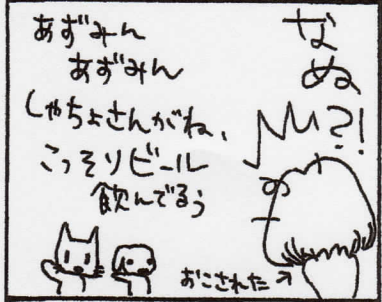 なぬ?!
あずみん
あずみん
しゃちょさんがね、
こっそりビール
飲んでるぅ
おこされた→